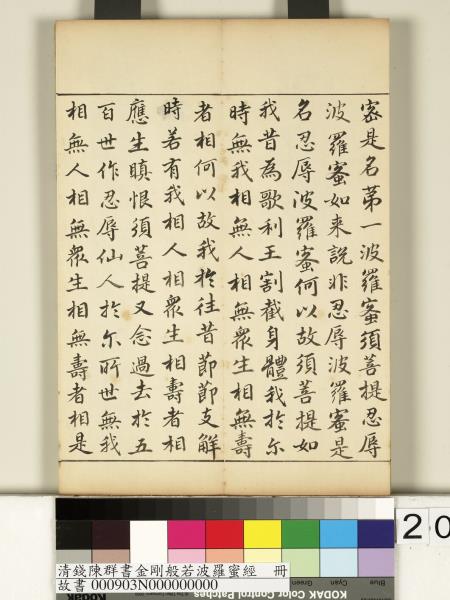 密是名第一波羅蜜須菩提忍辱
波羅蜜如来説非忍辱波羅蜜是
名忍辱波羅蜜何以故須菩提如
我昔為歌利王割截身體我於尔
時無我相無人相無衆生相無壽
者相何以故我於往昔節節支解
時若有我相人相衆生相壽者相
應生瞋恨須菩提又念過去於五
百世作忍辱仙人於尔所世無我
相無人相無衆生相無壽者相是
20
Blue Cyan Green
清錢陳群書金剛般若波羅蜜經 冊
故書 000903N000000000
KODAK Color Control Patches